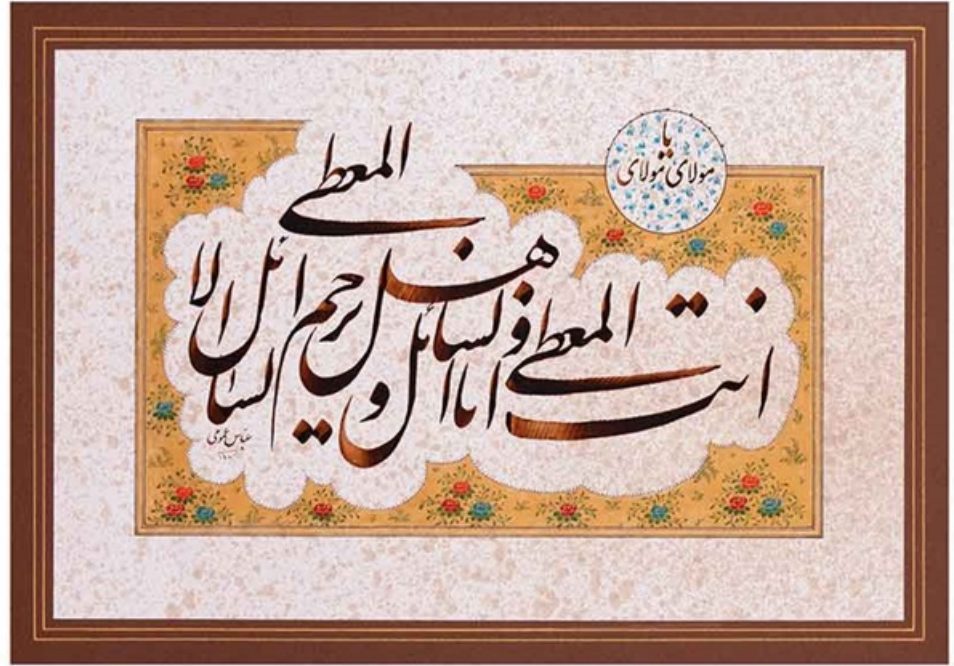 مولای یا مولای
انت المعطی و انا السائل و هل یرحم السائل الا المعطی
عباس